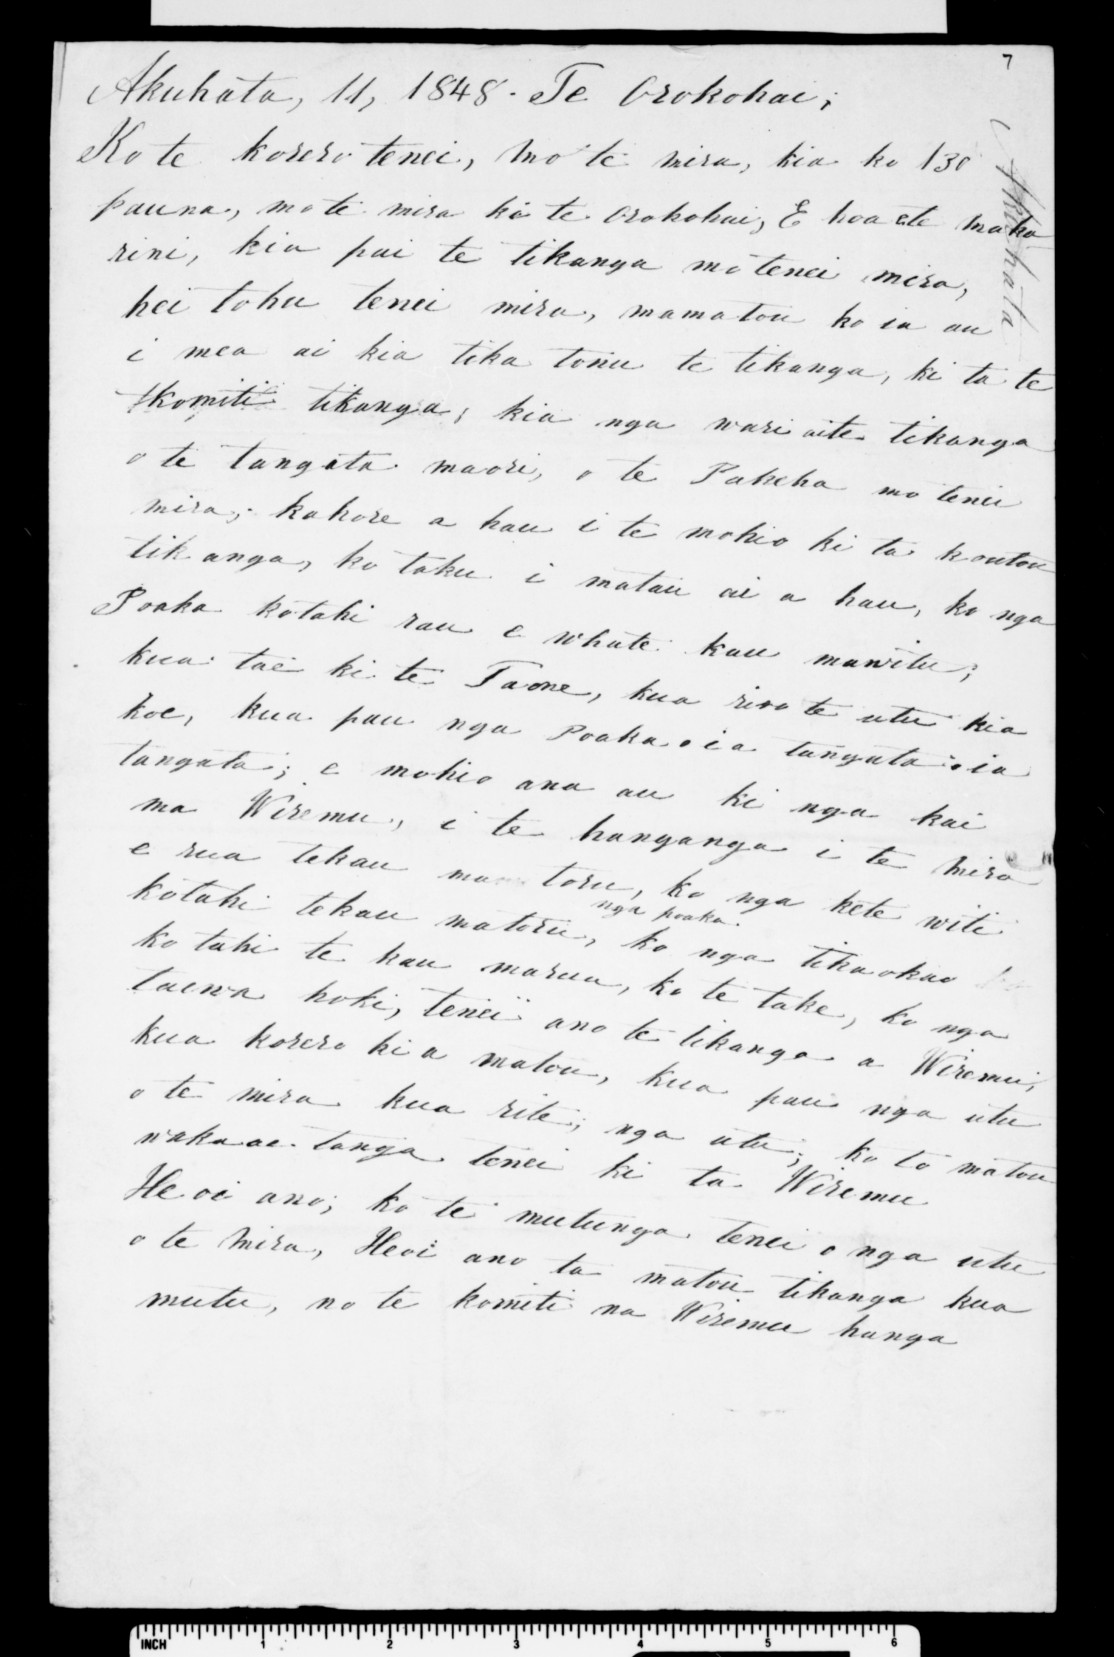 7
Akuhata, 11, 1848. Te Orokohai;
Ko te korero tenei, mo te mira, kia ko 130
pauna, mo te mira ki te Orokohai, E hoa ete maka
rini, kia pai te tikanga mo tenei mira,
hei tohu tenei mira, mamatou ko ia au
i mea ai kia tika tonu te tikanga, ki ta te
komiti tikanga; kia nga wari aite tikanga
o te tangata maori, o te Pakeha mo tenei
mira; kahore a hau i te mohio ki ta koutou
tikanga, ko taku i matau ai a hau, ko nga
Poaka kotahi rau e whate kau mawitu;
kua tae ki te Taone, kua riro te utu kia
koe, kua pau nga Poaka o ia tangata o ia
tangata; e mohio ana au ki nga kai
ma Wiremu, i te hanganga i te mira
e rua tekau ma toru, ko nga kete witi
kotahi tekau matoru, ko nga tikaokao
nga poaka
ko tahi te kau marua, ko te take, ko nga
taewa hoki, tenei ano te tikanga a Wiremu,
kua korero ki a matou, kua pau nga utu
o te mira kua rite; nga utu; ko to matou
wakaae tanga tenei ki ta Wiremu
He oi ano; ko te mutunga tenei o nga utu
o te mira, Heoi ano ta matou tikanga kua
mutu, no te komiti na Wiremu hanga
Akuhata
INCH 1 2 3 4 5 6